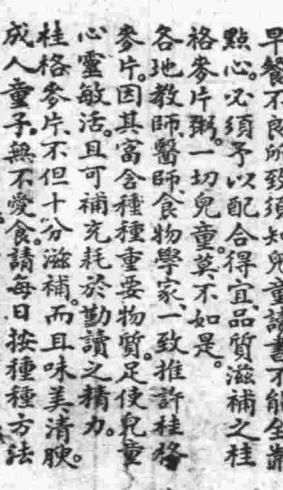 早餐不良所致須知兒童讀書不能全靠
點心。必須予以配合得宜、品質滋補之桂
格麥片粥。一切兒童。莫不如是。
各地教師、醫師、食物學家、一致推許桂格
麥片。因其富含種種重要物質。足使兒童
心靈敏活。且可補充耗於勤讀之精力。
桂格麥片、不但十分滋補。而且味美清腴。
成人童子。無不愛食。請每日按種種方法